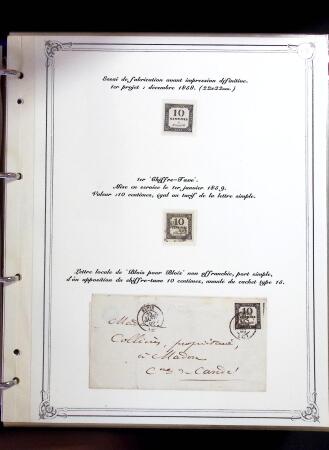 Essai de fabrication avant impression définitive.
1er projet : décembre 1858. (22x22mm.)
10
CENTIMES
1er "Chiffre-Taxe".
Mise en service le 1er janvier 1859.
Valeur :10 centimes, égal au tarif de la lettre simple.
10
Lettre locale de "Blois pour Blois" non affranchie, port simple,
d'un apposition de chiffre-taxe 10 centimes, annulé du cachet type 15.
10
Collières, propriétaire,
à Madon
Cne de Candé